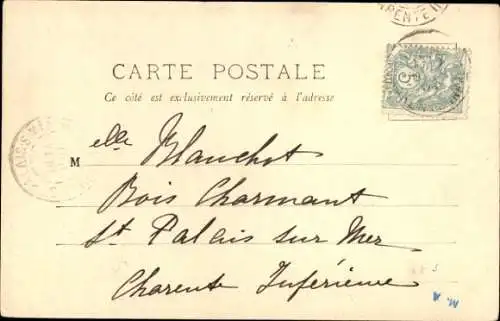 CARTE POSTALE
Ce côté est exclusivement réservé à l'adresse
Melle Blanchot
Bois Charmant
St Palais sur Mer
Charente Inférieure
M. A